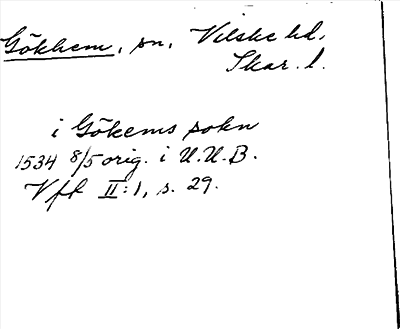 Gökhem, sn, Vilske hd.
Skar. l.
i Gökems sokn
1534 8/5 orig. i U.U.B.
Vfl II:1, s. 29.